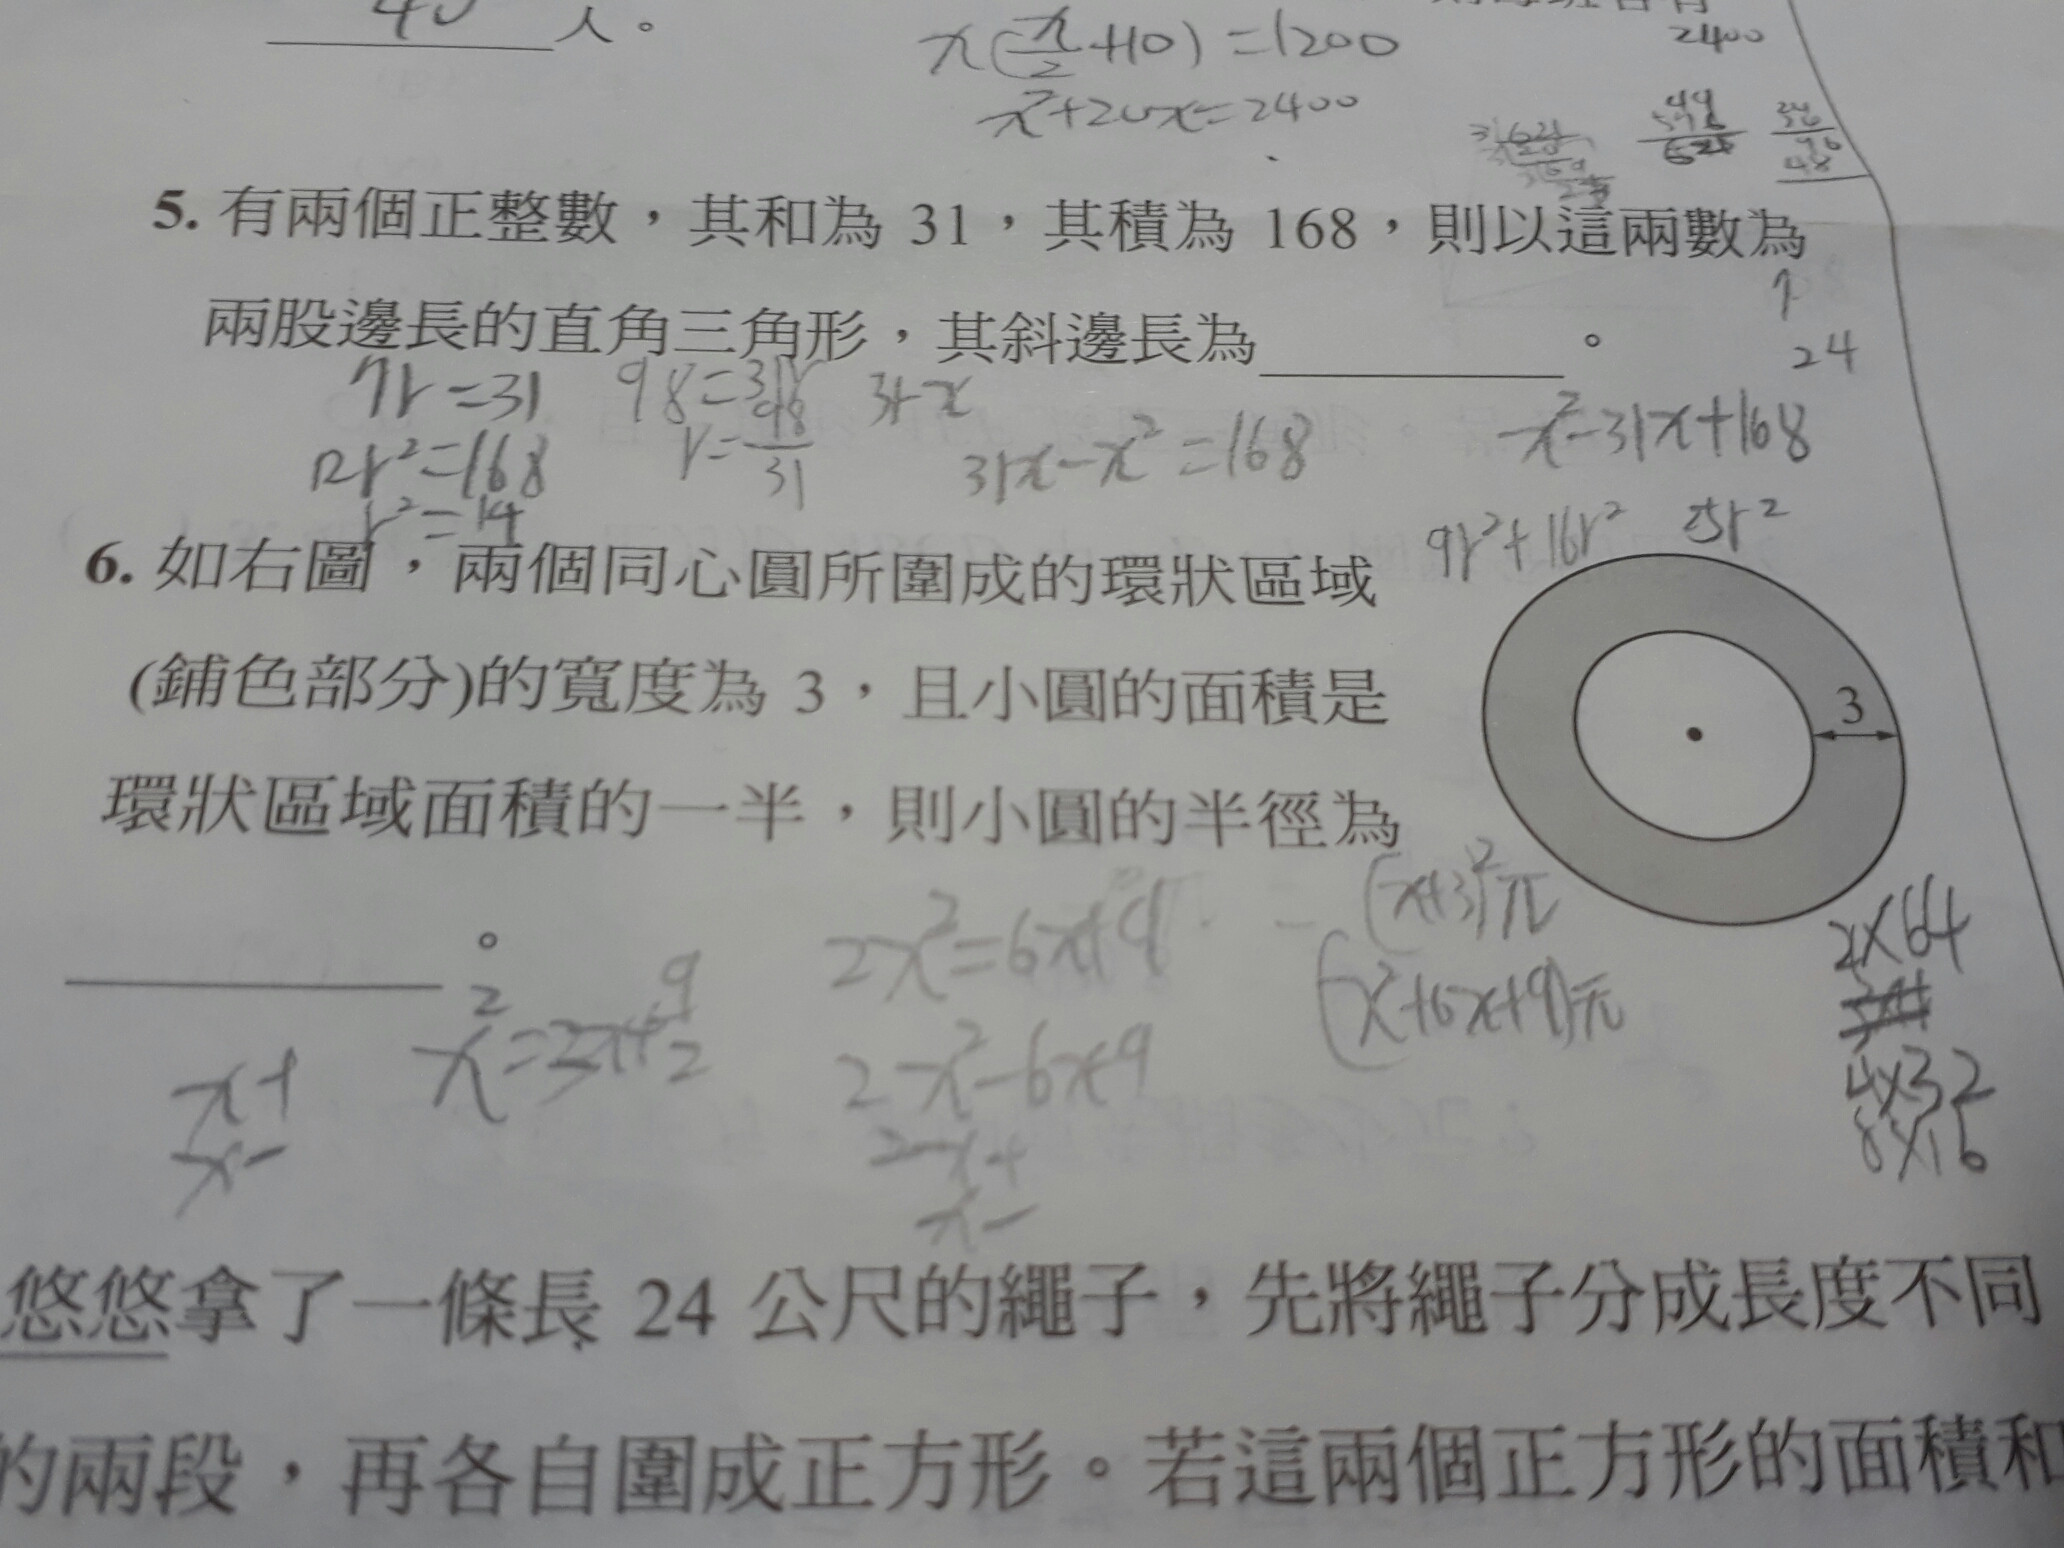 40 人。
x(x/2+10)=1200
2400
x²+20x=2400
5. 有兩個正整數，其和為 31，其積為 168，則以這兩數為
兩股邊長的直角三角形，其斜邊長為 。
7
24
7r=31
98=31r
31-x
12r²=168
r=98/31
31x-x²=168
x²-31x+168
r²=14
9r²+16r² 25r²
6. 如右圖，兩個同心圓所圍成的環狀區域
(鋪色部分)的寬度為 3，且小圓的面積是
3
環狀區域面積的一半，則小圓的半徑為
。
2x²=6x+9
(x+3)²π
(x²+6x+9)π
2×64
4×32
8×16
x²=3x+9/2
2x²-6x+9
x+
x-
2x+
x-
悠悠拿了一條長 24 公尺的繩子，先將繩子分成長度不同
的兩段，再各自圍成正方形。若這兩個正方形的面積和